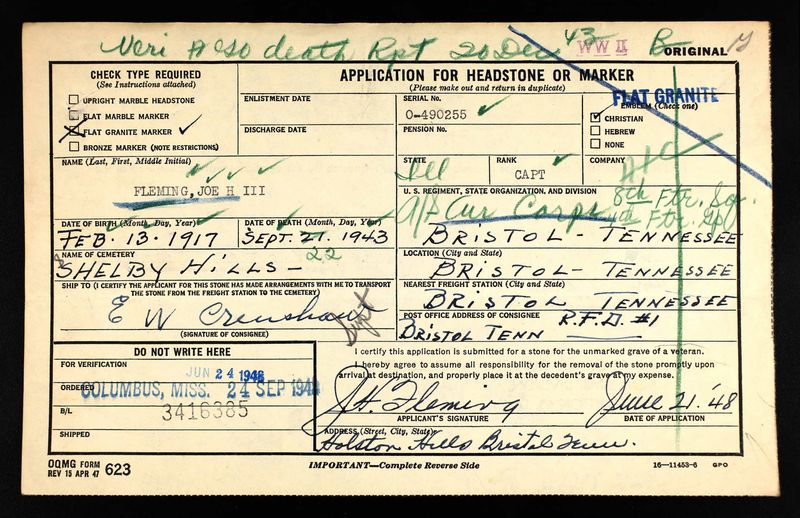 Veri AGO death Rpt 20 Dec 43 WW II B
ORIGINAL
CHECK TYPE REQUIRED
(See Instructions attached)
UPRIGHT MARBLE HEADSTONE
FLAT MARBLE MARKER
FLAT GRANITE MARKER
BRONZE MARKER (NOTE RESTRICTIONS)
APPLICATION FOR HEADSTONE OR MARKER
(Please make out and return in duplicate)
ENLISTMENT DATE
DISCHARGE DATE
SERIAL No.
O-490255
PENSION No.
FLAT GRANITE
EMBLEM (Check one)
CHRISTIAN
HEBREW
NONE
NAME (Last, First, Middle Initial)
FLEMING, JOE H III
STATE
Ill
RANK
CAPT
COMPANY
A/C
U. S. REGIMENT, STATE ORGANIZATION, AND DIVISION
Air Corps
8th Ftr. Sq.
Ftr. Gp
DATE OF BIRTH (Month, Day, Year)
FEB. 13. 1917
DATE OF DEATH (Month, Day, Year)
SEPT. 21. 1943
22
BRISTOL - TENNESSEE
NAME OF CEMETERY
SHELBY HILLS -
LOCATION (City and State)
BRISTOL - TENNESSEE
SHIP TO (I CERTIFY THE APPLICANT FOR THIS STONE HAS MADE ARRANGEMENTS WITH ME TO TRANSPORT
THE STONE FROM THE FREIGHT STATION TO THE CEMETERY)
E W Crenshaw
Supt
(SIGNATURE OF CONSIGNEE)
NEAREST FREIGHT STATION (City and State)
BRISTOL TENNESSEE
POST OFFICE ADDRESS OF CONSIGNEE
R.F.D. #1
BRISTOL TENN
DO NOT WRITE HERE
FOR VERIFICATION
JUN 24 1948
ORDERED
COLUMBUS, MISS. 24 SEP 1948
B/L
3416385
SHIPPED
I certify this application is submitted for a stone for the unmarked grave of a veteran.
I hereby agree to assume all responsibility for the removal of the stone promptly upon
arrival at destination, and properly place it at the decedent's grave at my expense.
J. H. Fleming
June 21 '48
APPLICANT'S SIGNATURE
DATE OF APPLICATION
ADDRESS (Street, City, State)
Holston Hills Bristol Tenn.
OQMG FORM
REV 15 APR 47 623
IMPORTANT—Complete Reverse Side
16—11453-6 GPO